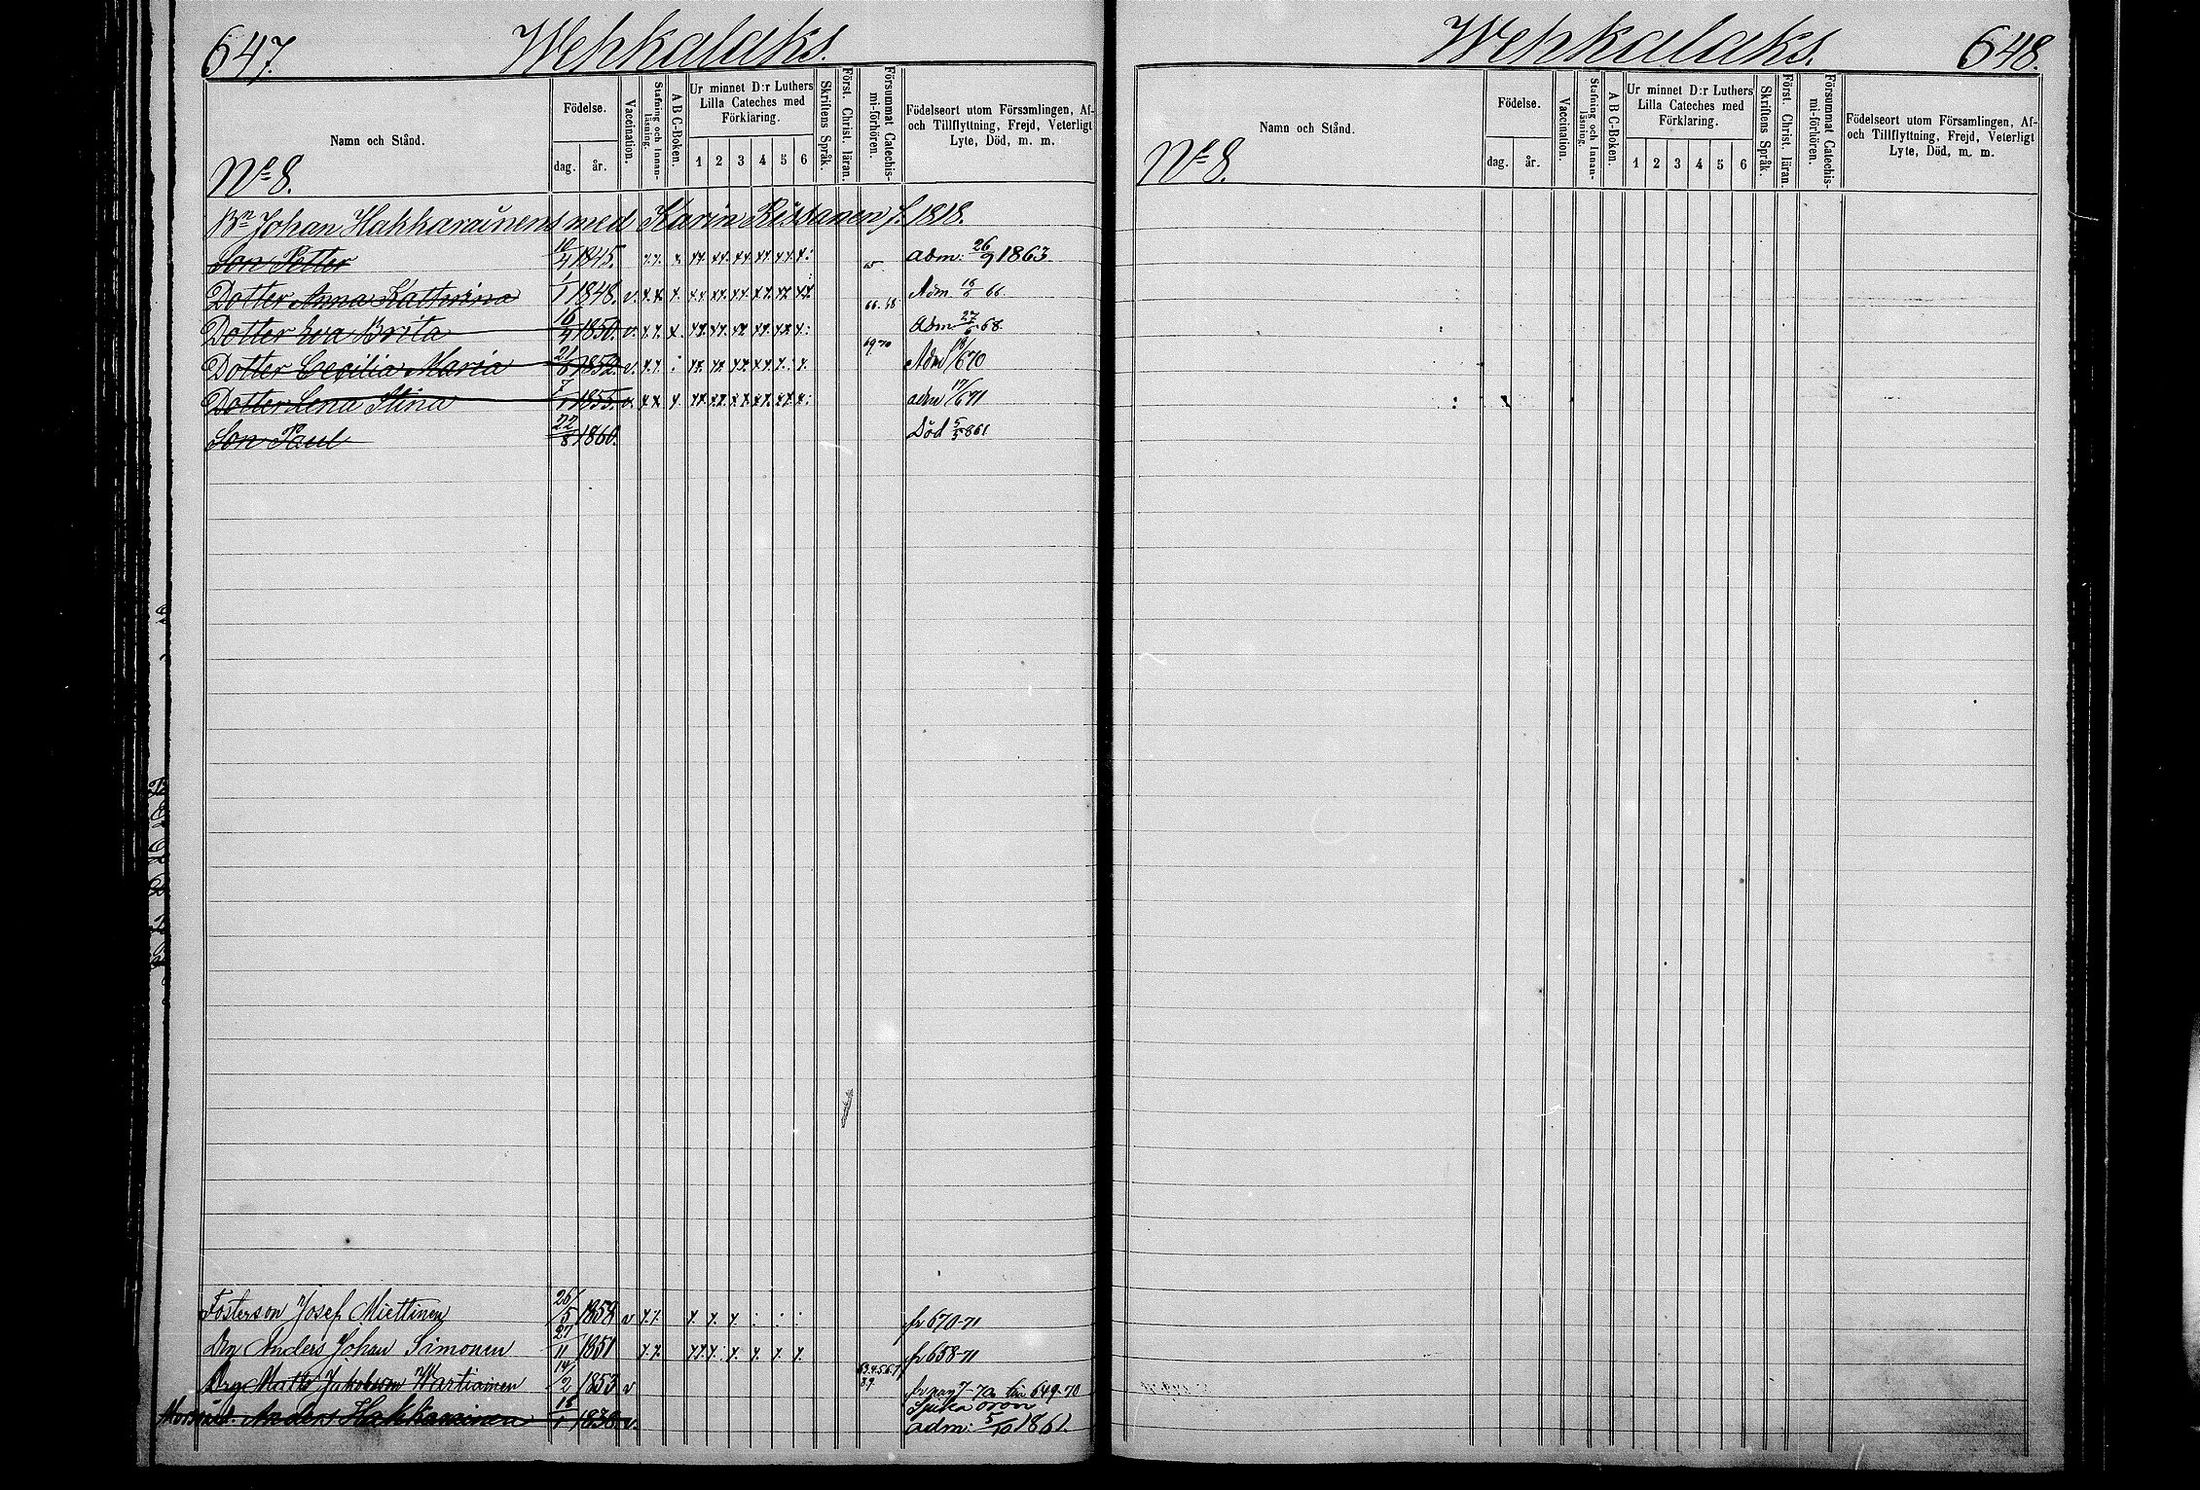 647.
Wehkalaks.
Namn och Stånd.
Födelse.
dag.
år.
Vaccination.
Stafning och Innan-läsning.
A B C-Boken.
Ur minnet D:r Luthers
Lilla Cateches med
Förklaring.
1 2 3 4 5 6
Skriftens Språk.
Först. Christ. läran.
Försummat Catechis-
mi-förhören.
Födelseort utom Församlingen, Af-
och Tillflyttning, Frejd, Veterligt
Lyte, Död, m. m.
No 8.
Bn Johan Hakkarainens med Karin Ristanen f. 1818.
Son Petter 10/4 1845. 65 adm: 26/9 1863
Dotter Anna Katterina 1/1 1848. v. 66. 68 Adm 16/6 66
Dotter Eva Brita 16/4 1850. v. Adm 27/6 68
Dotter Cecilia Maria 21/8 1852. v. 69.70 Adm /6 70
Dotter Lena Stina 7/1 1855. v. adm 17/6 71
Son Paul 22/8 1860. Död 5/5 861
Fosterson Josef Miettinen 26/5 1858 v fr 670-71
Drg Anders Johan Simonen 27/11 1851 fr 658-71
Drg Matts Jakobson Wartiainen 14/2 1853 v till 649-70
Anders Hakkarainen 18/1 1838 v. Sjuka öron
adm: 5/10 1861.
Wehkalaks.
648.
Namn och Stånd.
Födelse.
dag.
år.
Vaccination.
Stafning och Innan-läsning.
A B C-Boken.
Ur minnet D:r Luthers
Lilla Cateches med
Förklaring.
1 2 3 4 5 6
Skriftens Språk.
Först. Christ. läran.
Försummat Catechis-
mi-förhören.
Födelseort utom Församlingen, Af-
och Tillflyttning, Frejd, Veterligt
Lyte, Död, m. m.
No 8.